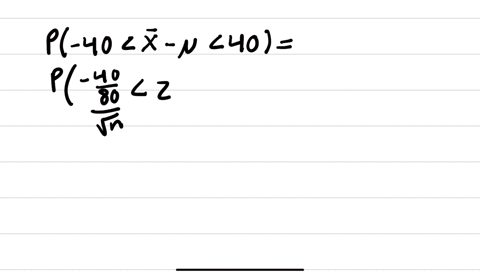 P(-40 < x̄ - μ < 40) =
P(-40/(80/√n) < z